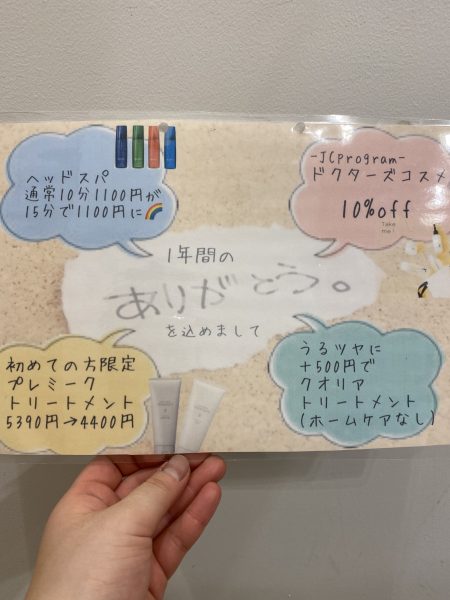 ヘッドスパ
通常10分1100円が
15分で1100円に
-JCprogram-
ドクターズコスメ
10%off
Take
me!
1年間の
ありがとう。
を込めまして
初めての方限定
プレミーク
トリートメント
5390円→4400円
うるツヤに
+500円で
クオリア
トリートメント
(ホームケアなし)